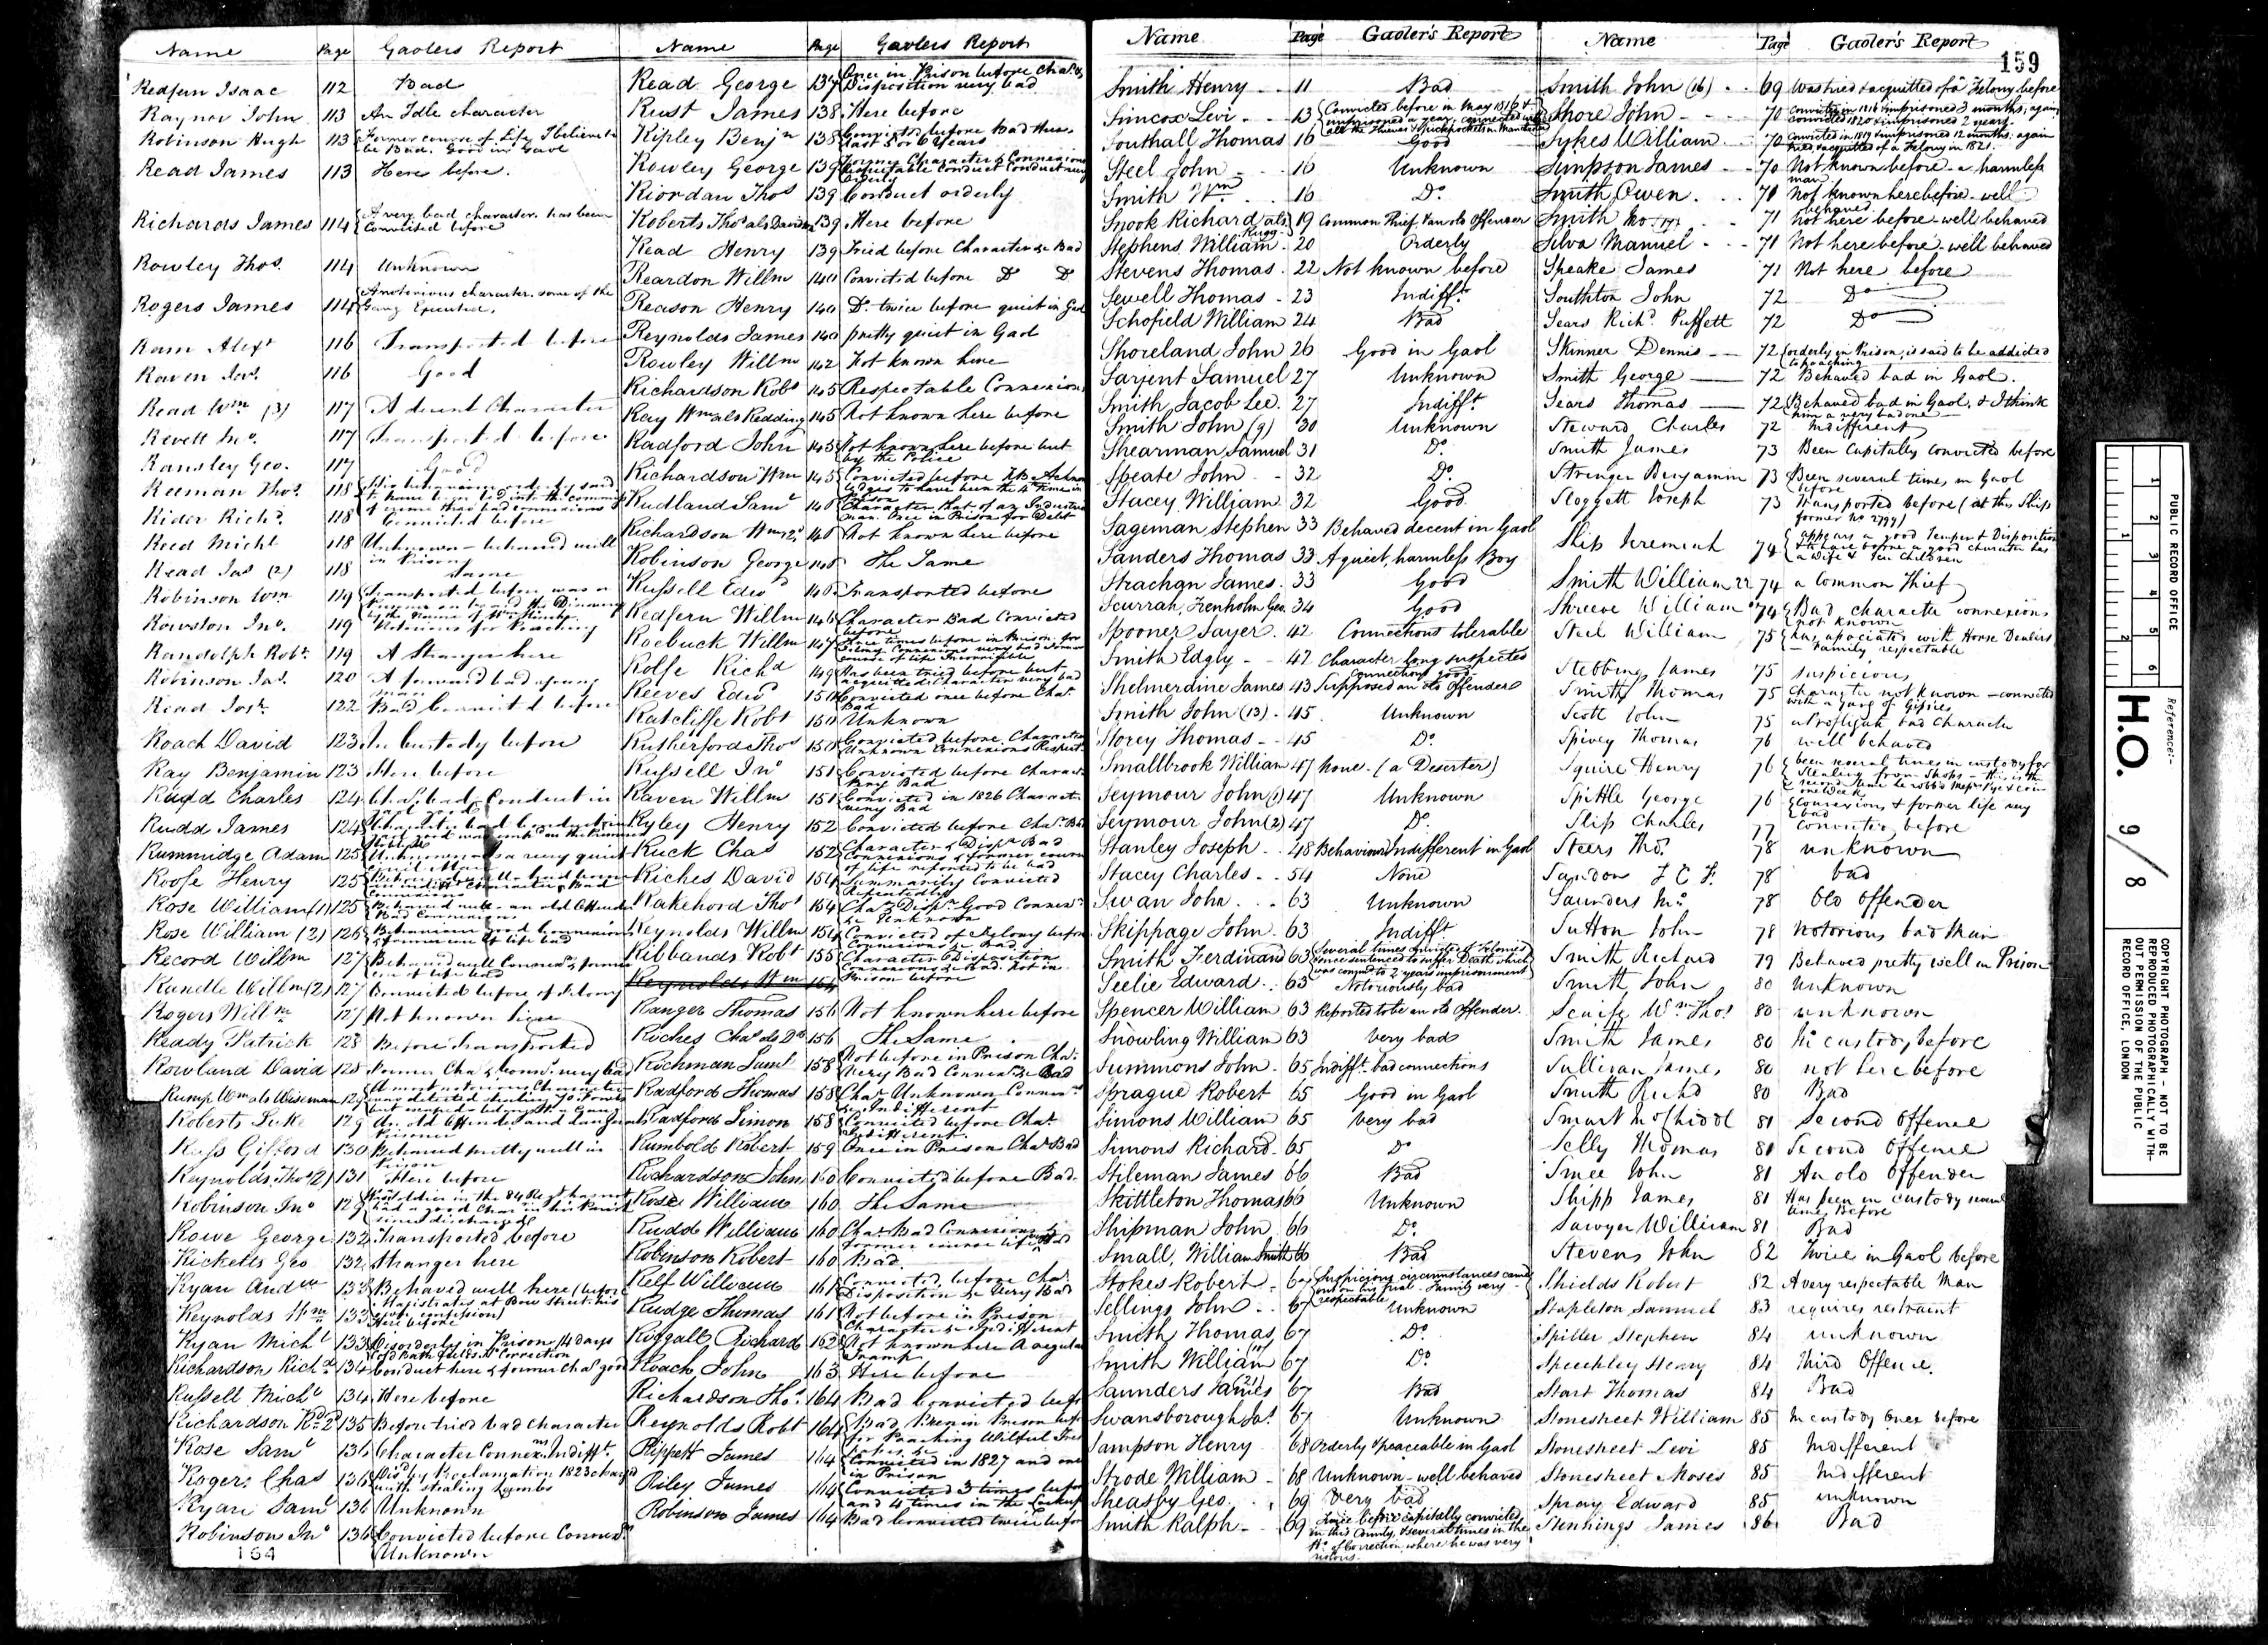 Name Page Gaolers Report
Redfern Isaac 112 Bad
Raynor John 113 An Idle character
Robinson Hugh 113 Former course of Life I believe to
be Bad. Good in Gaol
Read James 113 Here before.
Richards James 114 A very bad character. has been
Convicted before
Rowley Thos. 114 Unknown
Rogers James 114 A notorious character. some of the
Gang Executed.
Ram Alexr 116 Transported before
Raven Jas. 116 Good
Read Wm (3) 117 A decent Character
Revett Jno. 117 Transported before
Ransley Geo. 117 Good
Reeman Thos. 118
Rider Richd. 118 Convicted before
Reed Michl 118 Unknown - behaved well
in Prison
Read Jas (2) 118 Same
Robinson Wm 119 Transported before was a
Rowston Jno. 119 Notorious for Poaching
Randolph Robt. 119 A Stranger here
Robinson Jas. 120 A forward bad young
man
Read Josh. 122 Bad Convicted before
Roach David 123 In custody before
Ray Benjamin 123 Here before
Rudd Charles 124 Cha. bad, Conduct in
Rudd James 124
Rummidge Adam 125
Roofe Henry 125
Rose William (1) 125 Behaved well - an old Offender
Bad Connexions
Rose William (2) 126 Behaviour good Connexions
& former course of life bad
Record Willm 127 Behaved well Connexns. & former
Rundle Willm (2) 127 Convicted before of Felony
Rogers Willm 127 Not known here
Ready Patrick 128 Before Transported
Rowland David 128 Former Cha. & Connns. very bad
Rump Wm als Wiseman 129 A most notorious Character
Roberts Luke 129 An old Offender and dangerous
Prisoner
Russ Gifford 130 Behaved pretty well in
Prison
Reynolds Thos (2) 131 Here before
Robinson Jno 129
since discharged
Rowe George 132 Transported before
Ricketts Geo 132 Stranger here
Ryan Andw 133 Behaved well here (before
Magistrates at Bow Street. his
Reynolds Wm 133 Here before
Ryan Michl 133 Disorderly in Prison, 14 days
Richardson Richd 134 Conduct here & former Cha. good
Russell Michl 134 Here before
Richardson Rd. 2d 135 Before tried bad character
Rose Saml 136 Character Connexns. Indifft.
Rogers Chas 136 Disd. by Proclamation 1823 charged
with stealing Lambs
Ryan Saml 136 Unknown
Robinson Jno 136 Convicted before Connexns.
Unknown
164
Name Page Gaolers Report
Read George 137 Once in Prison before Cha. &
Disposition very bad
Rust James 138 Here before
Ripley Benjn 138 Convicted before Bad these
last 5 or 6 Years
Rowley George 139 Former Character & Connexions
respectable Conduct Conduct very
Orderly
Riordan Thos 139 Conduct orderly
Roberts Thos als Davidson 139 Here before
Read Henry 139 Tried before Character &c Bad
Reardon Willm 140 Convicted before Do Do
Reason Henry 140 Do. twice before quiet in Gaol
Reynolds James 140 pretty quiet in Gaol
Rowley Willm 142 Not known here
Richardson Robt 145 Respectable Connexions
Ray Wm als Redding 145 Not known here before
Radford John 145 Not known here before but
by the Police
Richardson Wm 145 Convicted before
Rudland Saml 146 Character that of an Industrs.
man. Once in Prison for Debt
Richardson Wm 2d 146 Not known here before
Robinson George 146 The Same
Russell Edwd 146 Transported before
Redfern Willm 146 Character Bad Convicted
before
Roebuck Willm 147 Five times before in Prison for
Felony Connexions very bad Former
course of life Incorrigible
Rolfe Richd 149 Has been tried before but
acquitted Character very bad
Reeves Edwd 150 Convicted once before Char.
Bad
Ratcliffe Robt 150 Unknown
Rutherford Thos 150 Convicted before, Character
Unknown Connexions Respect.
Russell Jno 151 Convicted before Charact.
Very Bad
Raven Willm 151 Convicted in 1826 Charact.
very Bad
Ryley Henry 152 Convicted before Char. Bad
Ruck Chas 152 Character & Dispn. Bad
Connexions & former course
of life reported to be bad
Riches David 154 Summarily Convicted
Repeatedly
Rakehord Thos 154 Char. Dispn. Good Connexs.
&c Unknown
Reynolds Willm 154 Convicted of Felony before
Connexions &c Bad
Ribbands Robt 155 Character & Disposition
Connexions &c Bad. Not in
Prison before
Reynolds Wm 164
Ranger Thomas 156 Not known here before
Roches Chas als Do 156 The Same
Richman Saml 158 Not before in Prison Cha.
Very Bad Connexs &c Bad
Radford Thomas 158 Char. Unknown Connexns
&c Indifferent
Radford Simon 158 Convicted before Char.
Indifferent
Rumbold Robert 159 Once in Prison Char. Bad
Richardson John 160 Convicted before Bad.
Rose William 160 The Same
Rudd William 160 Char. Bad Connexions &
former course life bad
Robinson Robert 160 Bad
Relf William 161 Convicted before Char.
Disposition &c Very Bad
Rudge Thomas 161 Not before in Prison
Character &c Indifferent
Riggall Richard 162 Not known here A regular
Tramp
Roach John 163 Here before
Richardson Thos. 164 Bad convicted before
Reynolds Robt 164 Bad, Been in Prison before
for Poaching
Rippett James 164 Convicted in 1827 and once
in Prison
Riley James 164 Convicted 3 times before
and 4 times in the Lockup
Robinson James 164 Bad Convicted twice before
Name Page Gaoler's Report
Smith Henry 11 Bad
Simcox Levi 13 Convicted before in May 1816 &
imprisoned a year, connected with
all the Thieves & pickpockets in Manchester
Southall Thomas 16 Good
Steel John 16 Unknown
Smith Wm 16 Do.
Snook Richard als Rugg 19 Common Thief & an old Offender
Stephens William 20 Orderly
Stevens Thomas 22 Not known before
Sewell Thomas 23 Indifft.
Schofield William 24 Bad
Shoreland John 26 Good in Gaol
Sarjent Samuel 27 Unknown
Smith Jacob Lee. 27 Indifft.
Smith John (9) 30 Unknown
Shearman Samuel 31 Do.
Speate John 32 Do.
Stacey William 32 Good.
Sageman Stephen 33 Behaved decent in Gaol
Sanders Thomas 33 A quiet, harmless Boy
Strachan James 33 Good
Scurrah, Trenholm Geo. 34 Good
Spooner Sayer 42 Connections tolerable
Smith Edgly 42 Character long suspected
Connections good
Shelmerdine James 43 Supposed an old Offender
Smith John (13) 45 Unknown
Storey Thomas 45 Do.
Smallbrook William 47 None. (a Deserter)
Seymour John (1) 47 Unknown
Seymour John (2) 47 Do.
Stanley Joseph 48 Behaviour Indifferent in Gaol
Stacey Charles 54 None
Swan John 63 Unknown
Skippage John 63 Indifft
Smith Ferdinand 63 Several times convicted of Felonies
once sentenced to suffer Death which
was commd to 2 years imprisonment
Seelie Edward 63 Notoriously bad
Spencer William 63 Reported to be an old Offender.
Snowling William 63 Very bad
Summons John 65 Indifft. bad connections
Sprague Robert 65 Good in Gaol
Simons William 65 Very bad
Simons Richard 65 Do
Stileman James 66 Bad
Skittleton Thomas 66 Unknown
Shipman John 66 Do.
Small, William Smith 66 Bad
Stokes Robert Suspicious circumstances came
out on his trial - Family very
respectable
Sellings John 67 Unknown
Smith Thomas 67 Do.
Smith William 67 Do.
Saunders James (2) 67 Bad
Swansborough Jas. 67 Unknown
Sampson Henry 68 Orderly & peaceable in Gaol
Strode William 68 Unknown - well behaved
Sheasby Geo. 69 Very bad
Smith Ralph 69 Twice before capitally convicted
in this County, & several times in the
Ho. of Correction, where he was very
riotous.
Name Page Gaoler's Report
159
Smith John (16) 69 Was tried & acquitted of a Felony before
Shore John 70 Convicted in 1816 & imprisoned 3 months; again
convicted 1820 & imprisoned 2 years.
Sykes William 70 Convicted in 1819 & imprisoned 12 months; again
tried & acquitted of a Felony in 1821.
Simpson James 70 Not known before - a harmless
man
Smith Owen 70 Not known here before - well
behaved
Smith 71 Not here before - well behaved
Silva Manuel 71 Not here before - well behaved
Speake James 71 Not here before
Southton John 72 Do
Sears Richd. Puffett 72 Do
Skinner Dennis 72 orderly in Prison, is said to be addicted
to poaching
Smith George 72 Behaved bad in Gaol.
Sears Thomas 72 Behaved bad in Gaol, & I think
him a very bad one
Steward Charles 72 Indifferent
Smith James 73 Been Capitally convicted before
Stringer Benjamin 73 Been several times in Gaol
before
Sloggett Joseph 73 Transported before (at this Ship
former No 2799)
Slip Jeremiah 74 appears a good Temper & Disposition
& to have borne a good character has
a Wife & Ten Children
Smith William 22 74 a Common Thief
Shreeve William 74 Bad character connexions
not known
Steel William 75 has associated with Horse Dealers
- Family respectable
Stebbing James 75 suspicious
Smith Thomas 75 Character not known - connected
with a gang of Gipsies
Scott John 75 a Profligate bad Character
Spivey Thomas 76 well behaved
Squire Henry 76 been several times in custody for
Stealing from Shops - this is the
Spittle George 76 Connexions & former life very
bad
Slip Charles 77 Convicted before
Steers Thos. 78 unknown
Sandon J C F. 78 bad
Saunders Jno. 78 Old offender
Sutton John 78 Notorious bad Man
Smith Richard 79 Behaved pretty well in Prison
Smith John 80 unknown
Scaife Wm Thos. 80 unknown
Smith James 80 In custody before
Sullivan James 80 not here before
Smith Richd 80 Bad
Smart 81 Second offence
Selly Thomas 81 Second Offence
Smee John 81 An old Offender
Shipp James 81 Has been in custody several
times before
Sawyer William 81 Bad
Stevens John 82 Twice in Gaol before
Shields Robert 82 A very respectable Man
Stapleton Samuel 83 requires restraint
Spiller Stephen 84 unknown
Speechley Henry 84 third Offence.
Start Thomas 84 Bad
Stonestreet William 85 In custody once before
Stonestreet Levi 85 Indifferent
Stonestreet Moses 85 Indifferent
Spray Edward 85 unknown
Stennings James 86 Bad
PUBLIC RECORD OFFICE
Reference:-
H.O. 9/8
COPYRIGHT PHOTOGRAPH - NOT TO BE
REPRODUCED PHOTOGRAPHICALLY WITH-
OUT PERMISSION OF THE PUBLIC
RECORD OFFICE, LONDON